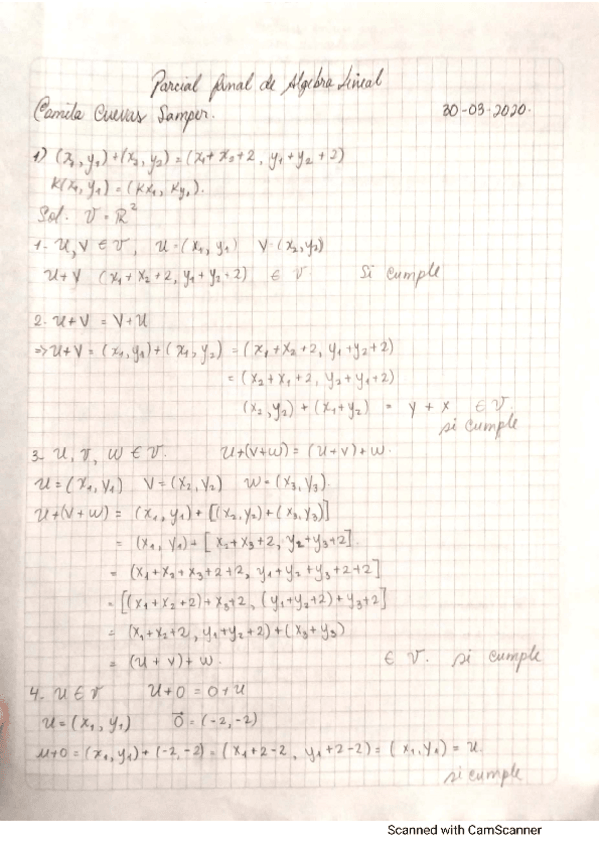 Parcial final de Algebra Lineal
Camila Cuevas Samper. 30-03-2020.
1) (x₁, y₁)+(x₂, y₂) = (x₁+x₂+2, y₁+y₂+2)
K(x₁, y₁) = (Kx₁, Ky₁).
Sol. V = ℝ²
1- U,V ∈ V, U=(x₁, y₁) V=(x₂, y₂)
U+V (x₁+x₂+2, y₁+y₂+2) ∈ V Si cumple
2. U+V = V+U
=> U+V = (x₁, y₁)+(x₂, y₂) = (x₁+x₂+2, y₁+y₂+2)
= (x₂+x₁+2, y₂+y₁+2)
(x₂, y₂) + (x₁+y₂) = y + x ∈ V
si cumple
3- U, V, W ∈ V. U+(V+W) = (U+V)+W.
U=(x₁, y₁) V=(x₂, y₂) W=(x₃, y₃).
U+(V+W) = (x₁, y₁)+[(x₂, y₂)+(x₃, y₃)]
= (x₁, y₁)+[x₂+x₃+2, y₂+y₃+2].
= (x₁+x₂+x₃+2+2, y₁+y₂+y₃+2+2]
= [(x₁+x₂+2)+x₃+2, (y₁+y₂+2)+y₃+2]
= (x₁+x₂+2, y₁+y₂+2)+(x₃+y₃)
= (U+V)+W. ∈ V. si cumple
4. U ∈ V U+0 = 0+U
U=(x₁, y₁) 0⃗=(-2,-2)
U+0 = (x₁, y₁)+(-2,-2) = (x₁+2-2, y₁+2-2) = (x₁, y₁) = U.
si cumple
Scanned with CamScanner